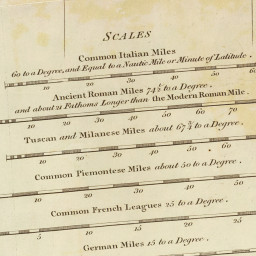 SCALES
Common Italian Miles
60 to a Degree, and Equal to a Nautic Mile or Minute of Latitude.
10 20 30 40 50 60
Ancient Roman Miles 74½ to a Degree.
and about 21 Fathoms Longer than the Modern Roman Mile.
10 20 30 40 50 60 70
Tuscan and Milanese Miles about 67¾ to a Degree.
10 20 30 40 50 60
Common Piemontese Miles about 50 to a Degree.
10 20 30 40 50
Common French Leagues 25 to a Degree.
5 10 15 20 25
German Miles 15 to a Degree.